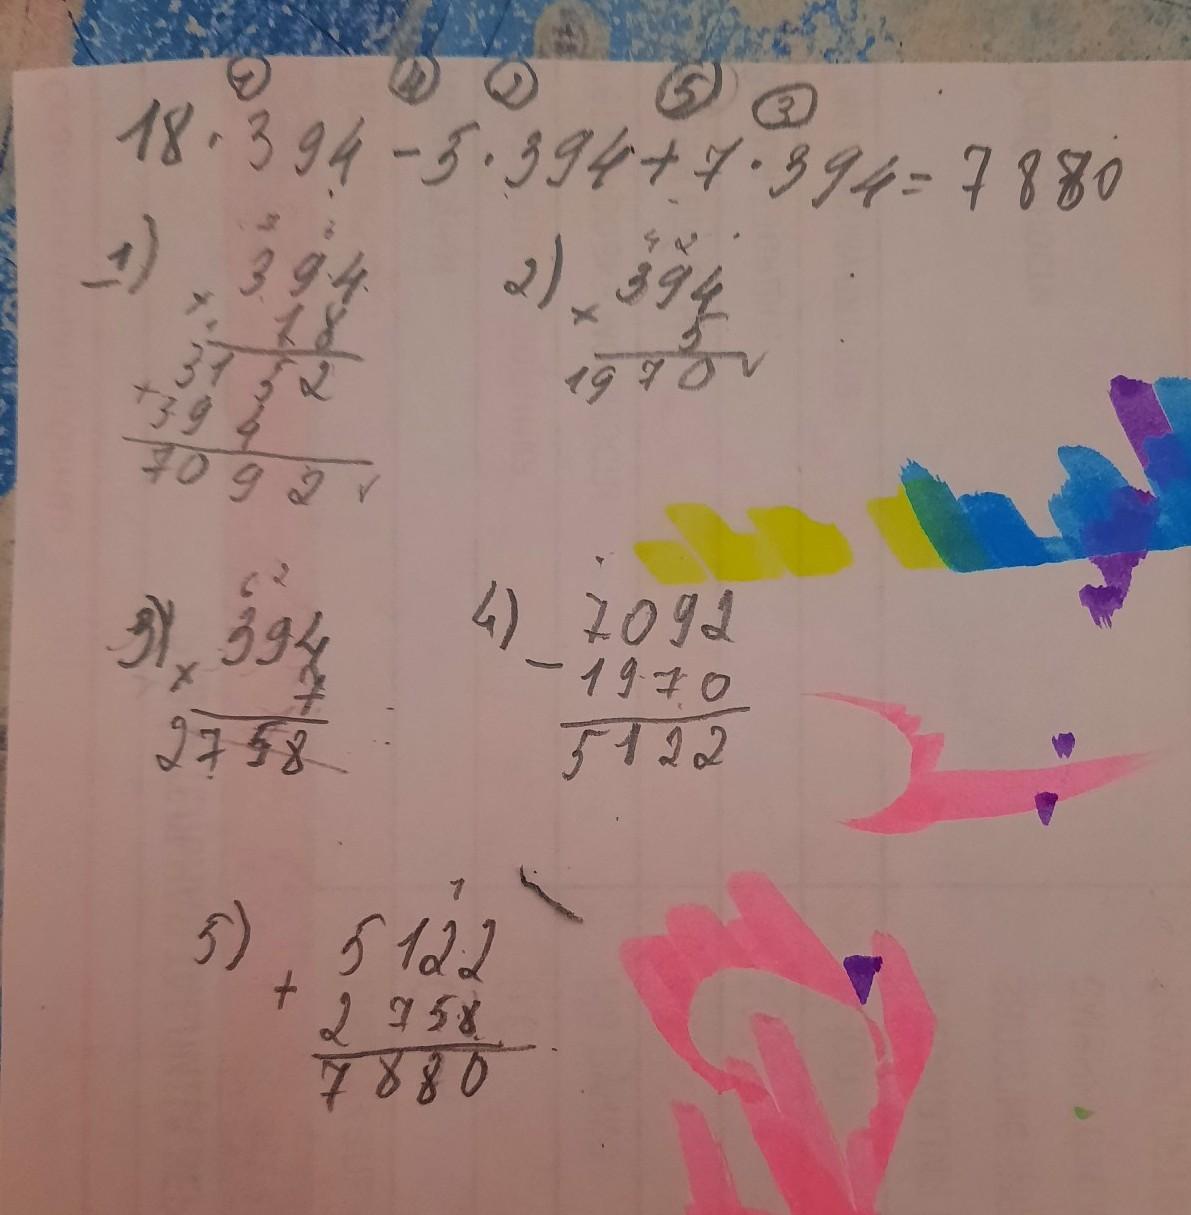 1 4 2 5 3
18 · 394 - 5 · 394 + 7 · 394 = 7880
1)
3 3
394
× 18
3152
+ 394
7092 ✓
2)
4 2
394
× 5
1970 ✓
3)
6 2
394
× 7
2758
4)
7092
- 1970
5122
5)
1
5122
+ 2758
7880